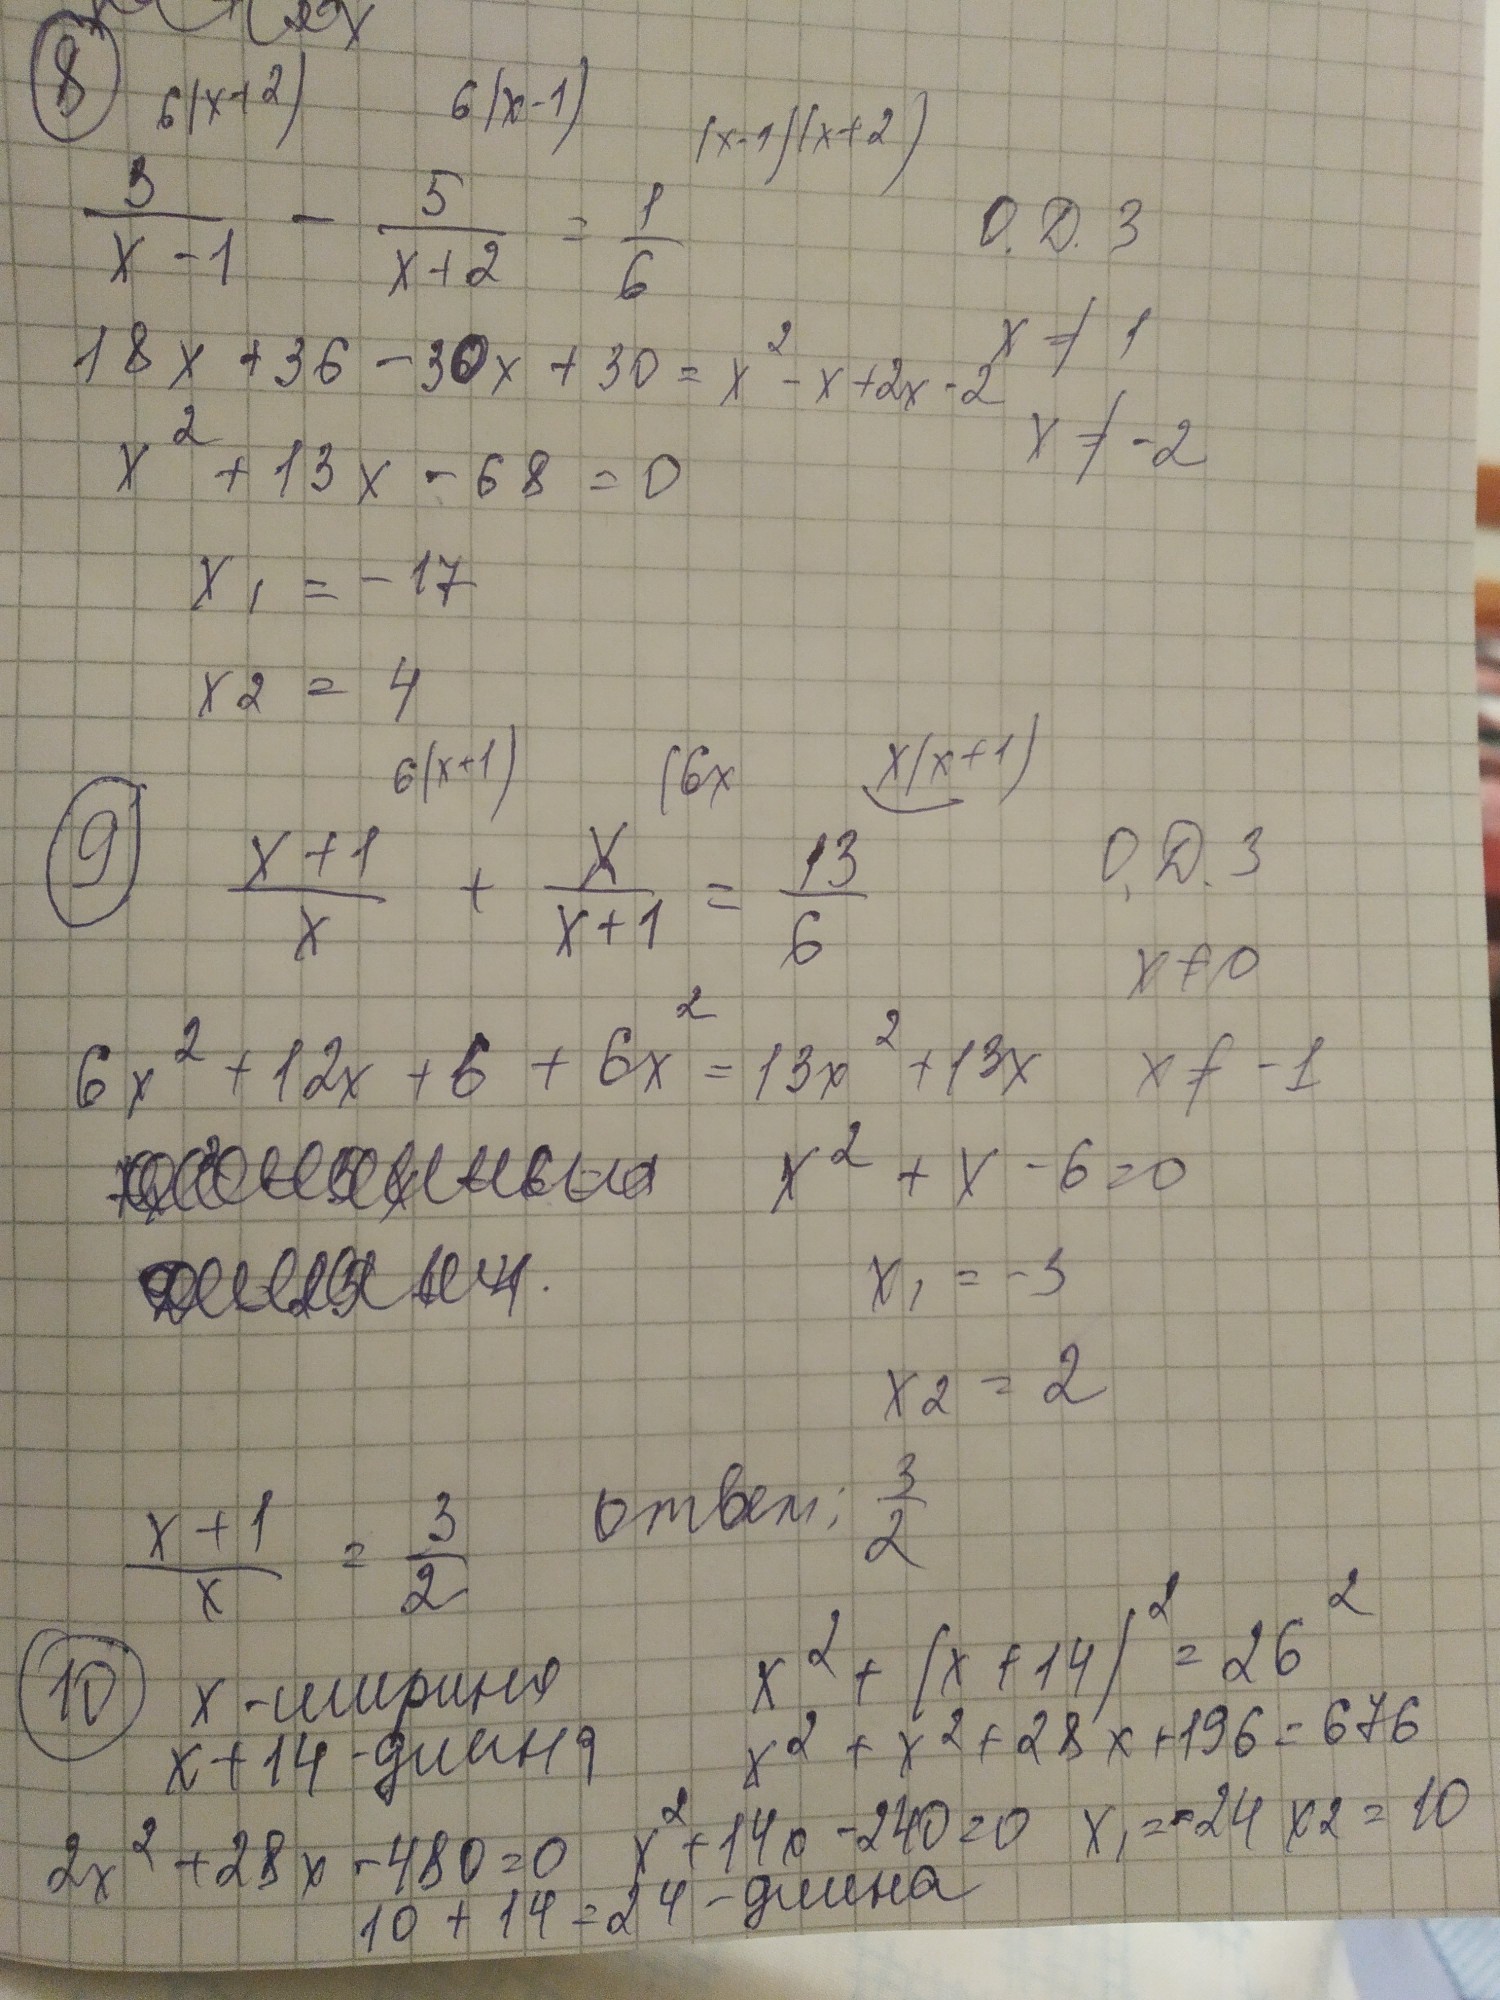 8
6(x+2) 6(x-1) (x-1)(x+2)
3/(x-1) - 5/(x+2) = 1/6 О.Д.З
18x + 36 - 30x + 30 = x² - x + 2x - 2 x ≠ 1
x² + 13x - 68 = 0 x ≠ -2
x₁ = -17
x2 = 4
6(x+1) (6x x(x+1)
9 (x+1)/x + x/(x+1) = 13/6 О.Д.З
x ≠ 0
6x² + 12x + 6 + 6x² = 13x² + 13x x ≠ -1
x² + x - 6 = 0
x₁ = -3
x2 = 2
(x+1)/x = 3/2 ответ: 3/2
10 x - ширина x² + (x+14)² = 26²
x+14 - длина x² + x² + 28x + 196 = 676
2x² + 28x - 480 = 0 x² + 14x - 240 = 0 x₁ = -24 x2 = 10
10 + 14 = 24 - длина